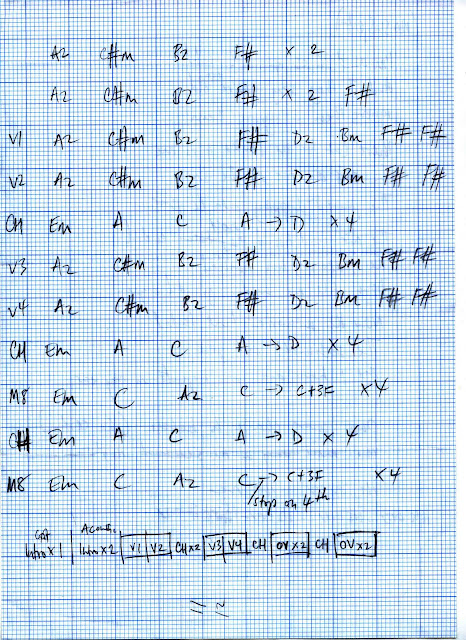 A2 C#m B2 F# x 2
A2 C#m B2 F# x 2 F#
V1 A2 C#m B2 F# D2 Bm F# F#
V2 A2 C#m B2 F# D2 Bm F# F#
CH Em A C A → D x 4
V3 A2 C#m B2 F# D2 Bm F# F#
V4 A2 C#m B2 F# D2 Bm F# F#
CH Em A C A → D x 4
M8 Em C A2 C → C+3F x 4
CH Em A C A → D x 4
M8 Em C A2 C → C+3F x 4
/stop on 4th
Intro x 1 Intro x 2 V1 V2 CH x 2 V3 V4 CH OV x 2 CH OV x 2